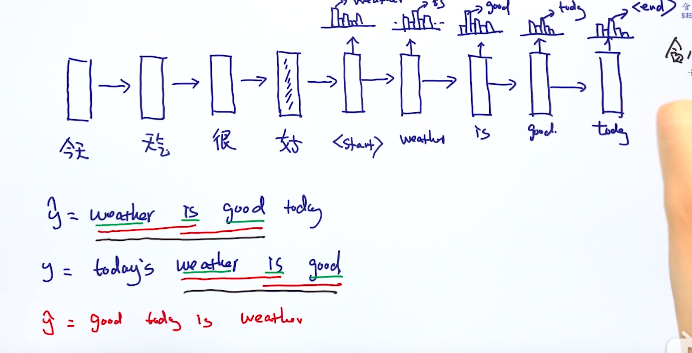 weather is good today <end>
今天 天气 很 好 <start> weather is good. today
ŷ = weather is good today
y = today's weather is good
ŷ = good today is weather